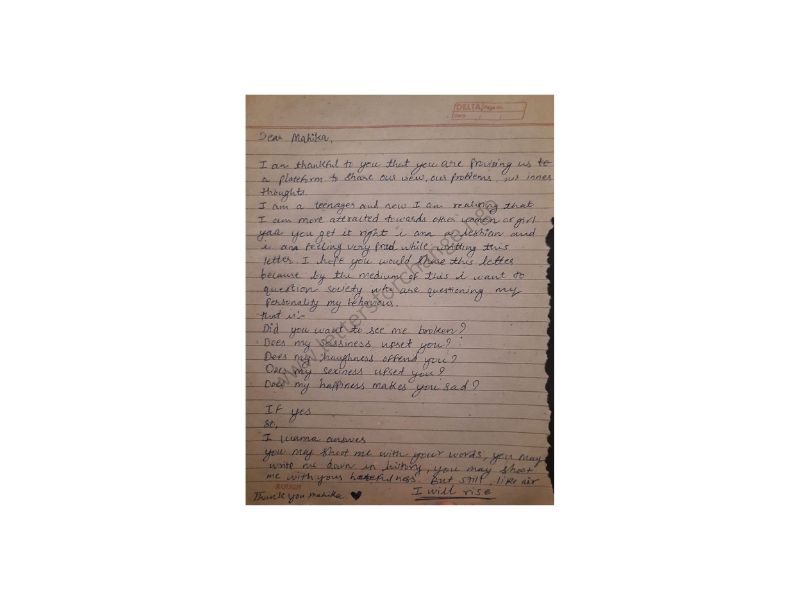 DELTA Page No.
Date / /
Dear Mahika,
I am thankful to you that you are Provising us to
a plateform to share our view, our problems, our inner
thoughts.
I am a teenager and now I am realising that
I am more attraited towards other women or girl
yaa you get it right i am a lesbian and
i am feeling very Proud while writting this
letter. I hope you would share this letter
because by the medium of this i want to
question society who are questioning my
personality my behaviour.
that is:-
Did you want to see me broken?
Does my sassiness upset you?
Does my haughness offend you?
Does my sexiness upset you?
Does my happiness makes you sad?
If yes
so,
I wanna answer
you may shoot me with your words, you may
write me down in history, you may shoot
me with your hatefulness. But still, like air
I will rise
Thank you Mahika ♥
www.lettersforchange